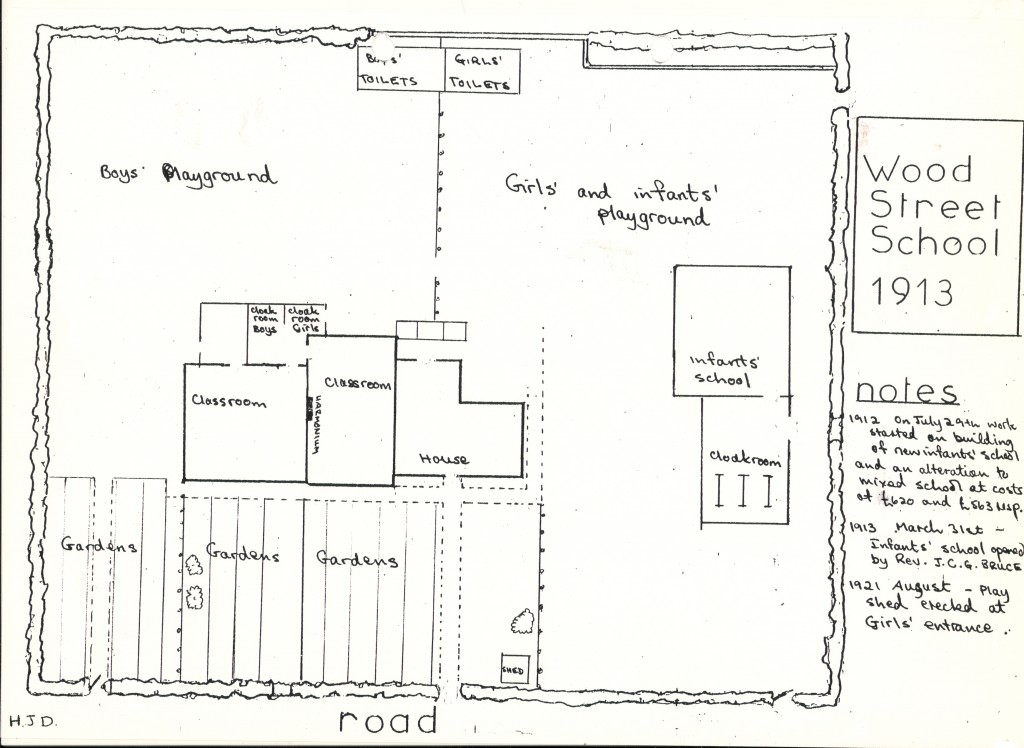 BOYS'
TOILETS
GIRLS'
TOILETS
Boys' Playground
Girls' and infants'
playground
Wood
Street
School
1913
cloak
room
Boys
cloak
room
Girls
Classroom
Classroom
HARMONIUM
House
infants'
school
cloakroom
Gardens
Gardens
Gardens
SHED
road
H.J.D.
notes
1912 On July 29th work
started on building
of new infants' school
and an alteration to
mixed school at costs
of £620 and £563
1913 March 31st -
Infants' school opened
by Rev. J.C.G. BRUCE
1921 August - Play
shed erected at
Girls' entrance.